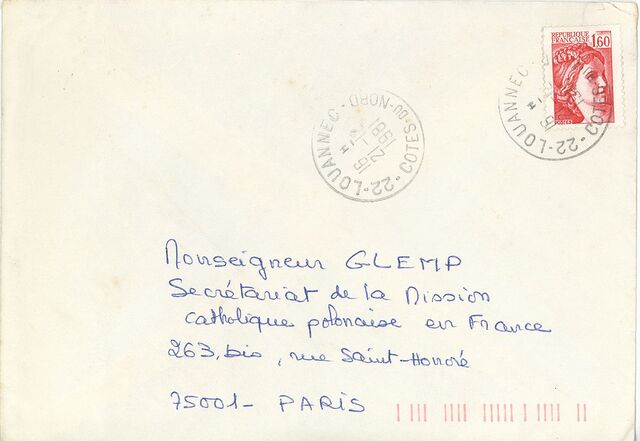 REPUBLIQUE
FRANÇAISE
1,60
22-LOUANNEC
COTES-DU-NORD
22-LOUANNEC
COTES-DU-NORD
Monseigneur GLEMP
Secrétariat de la Mission
catholique polonaise en France
263, bis, rue Saint-Honoré
75001- PARIS